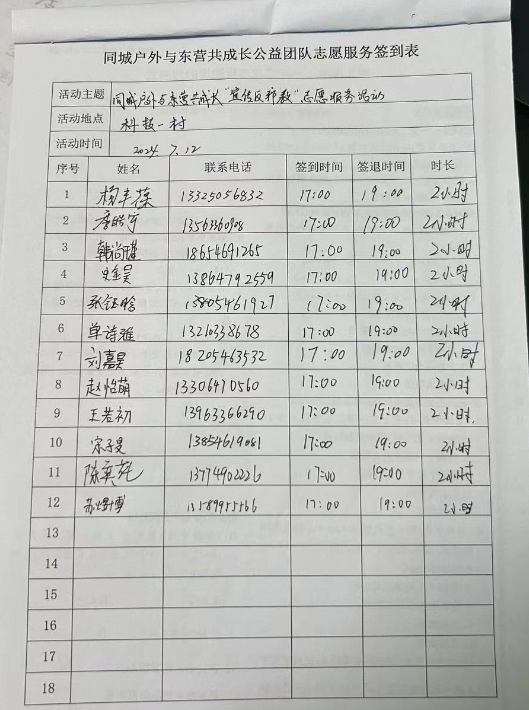 同城户外与东营共成长公益团队志愿服务签到表
活动主题 同城户外与东营共成长"宣传反邪教"志愿服务活动
活动地点 科教一村
活动时间 2024.7.12
序号 姓名 联系电话 签到时间 签退时间 时长
1 杨丰葆 13325056832 17:00 19:00 2小时
2 17:00 19:00 2小时
3 韩尚瑾 18654691265 17:00 19:00 2小时
4 13864792559 17:00 19:00 2小时
5 张钰晗 13805461927 17:00 19:00 2小时
6 单诗雅 17:00 19:00 2小时
7 刘嘉昊 18205463532 17:00 19:00 2小时
8 赵怡萌 13306470560 17:00 19:00 2小时
9 王若初 13963366290 17:00 19:00 2小时
10 宋子昊 13854619081 17:00 19:00 2小时
11 陈奕乾 13774902226 17:00 19:00 2小时
12 17:00 19:00 2小时
13
14
15
16
17
18